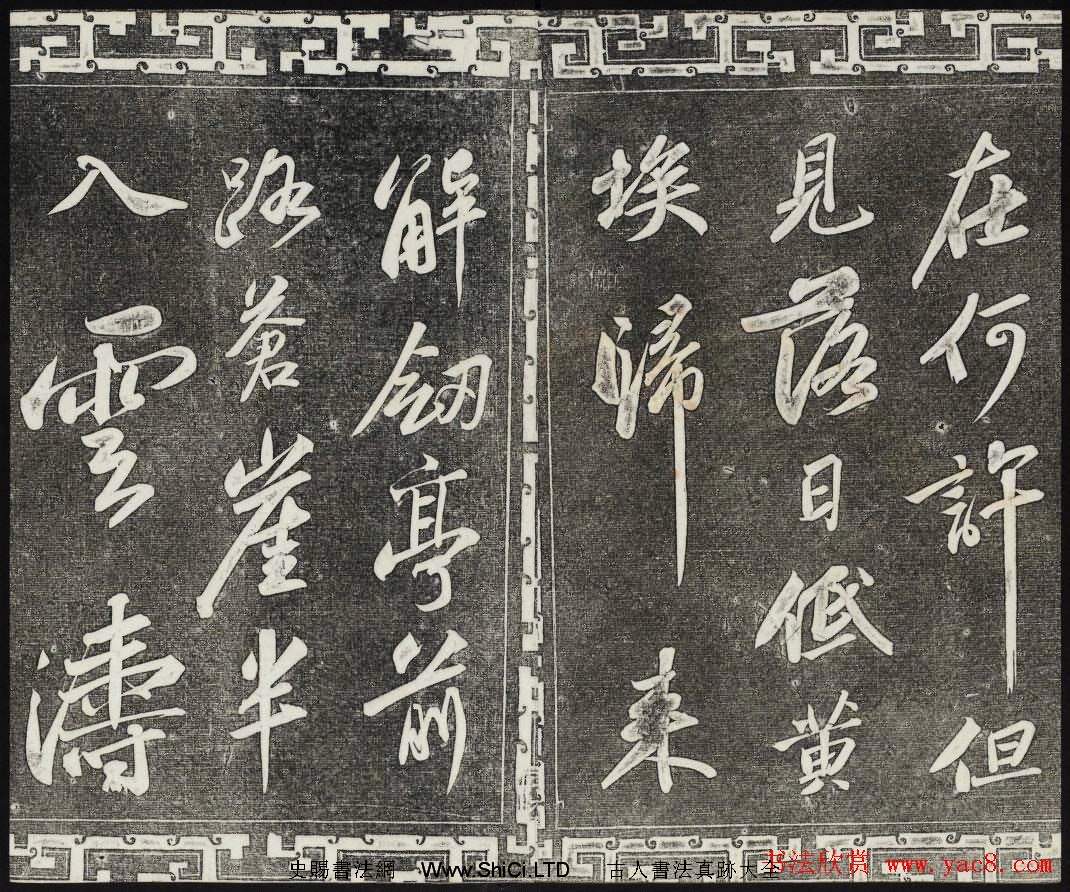 在何許但
見落日低黄
埃歸来
解劔亭前
路蒼崖半
入雲濤
史賜書法網 _ Www.ShiCi.LTD _ 古人書法真跡大全
书法欣赏 www.yac8.com